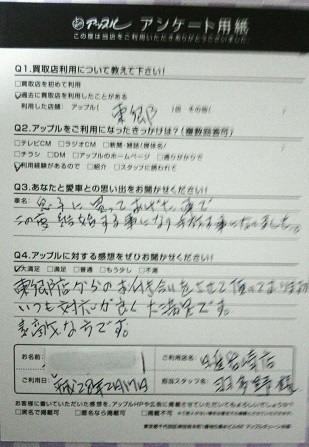 アップル アンケート用紙
この度は当店をご利用いただきありがとうございました。
Q1.買取店利用について教えて下さい!
□買取店を初めて利用
過去に買取店を利用したことがある
利用した店舗: アップル( 東郷 )店 その他( )
Q2.アップルをご利用になったきっかけは?(複数回答可)
□テレビCM □ラジオCM □新聞・雑誌(媒体名)
□チラシ □DM □アップルのホームページ □通りがかりで
利用経験があるので □紹介 □スタッフに誘われて
Q3.あなたと愛車との思い出をお聞かせください!
車名:
息子に買ってあげた車で
この
Q4.アップルに対する感想をぜひお聞かせください!
大満足 □満足 □普通 □もう少し □不満
東郷店からのお付き合いをさせて頂いており
いつも対応が良く大満足です。
素敵な方です。
お名前
ご利用店名
ご利用日
平成28年2月17日
担当スタッフ名
様
お客様に書いていただいた感想を、アップルHPや広告に掲載させていただいてもよろしいでしょうか?
□実名で掲載可 □匿名なら掲載可 □掲載不可